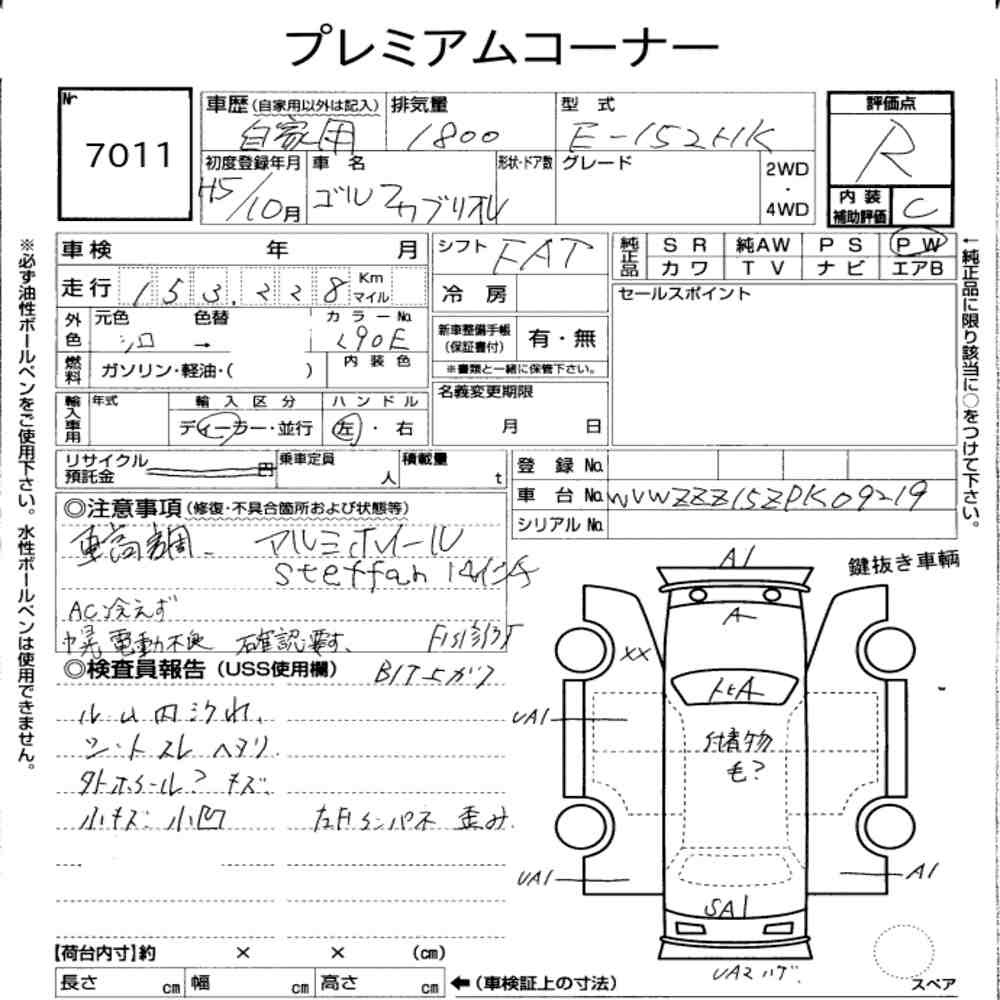 プレミアムコーナー
Nr 7011
車歴(自家用以外は記入) 自家用
排気量 1800
型 式 E-152HK
評価点 R
初度登録年月 H5/10月
車 名 ゴルフカブリオレ
形状・ドア数
グレード
2WD・4WD
内装補助評価 C
車検 年 月
シフト FAT
純正品 SR 純AW PS PW
カワ TV ナビ エアB
走行 153,228 Km マイル
冷 房
セールスポイント
外色 元色 シロ → 色替 カラーNo. L90E
新車整備手帳(保証書付) 有・無
※書類と一緒に保管下さい。
燃料 ガソリン・軽油・( ) 内装色
名義変更期限 月 日
輸入車用 年式 輸入区分 ディーラー・並行 ハンドル 左・右
リサイクル預託金 円 乗車定員 人 積載量 t
登 録 No.
車 台 No. WVWZZZ15ZPK09219
シリアル No.
◎注意事項(修復・不具合箇所および状態等)
車高調、 アルミホイール
steffan 14インチ
AC冷えず
幌電動不良 確認要す、
◎検査員報告(USS使用欄)
ルーム内汚れ、
シートスレ ヘタリ
外ホイール? キズ
小キズ 小凹 左Fインパネ 歪み
鍵抜き車両
A1
A
XX
トビA
UA1
付着物
毛?
UA1
A1
SA1
UA2 ハゲ
スペア
【荷台内寸】約 × × (cm)
長さ cm 幅 cm 高さ cm ←(車検証上の寸法)
※必ず油性ボールペンをご使用下さい。水性ボールペンは使用できません。
←純正品に限り該当に○をつけて下さい。